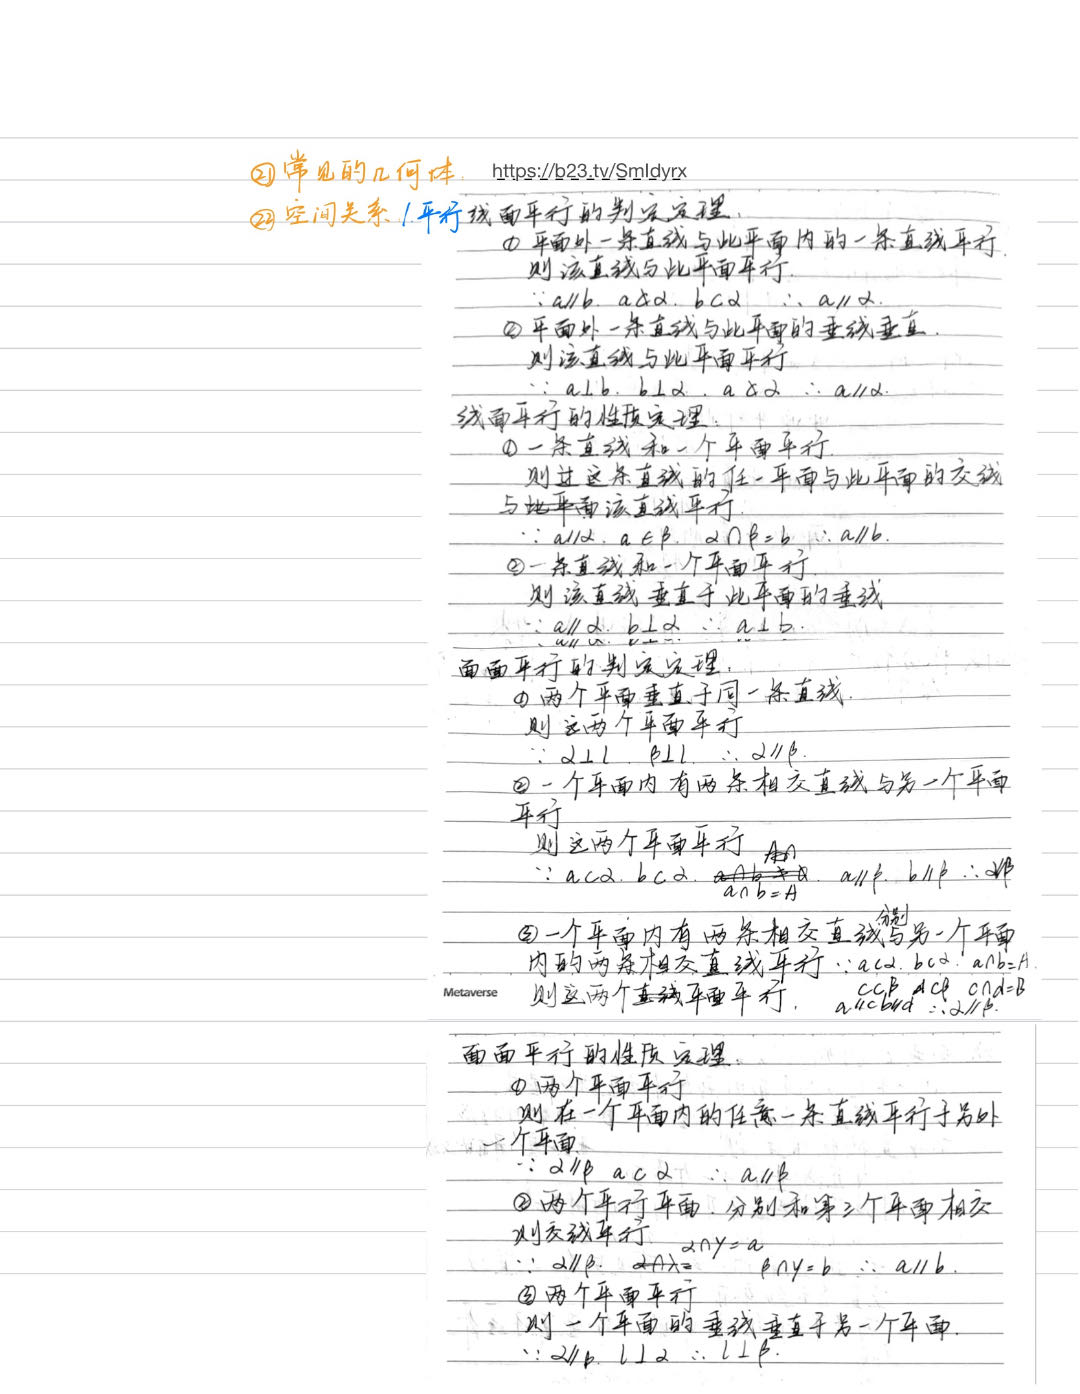 ㉑ 常见的几何体. https://b23.tv/SmIdyrx
㉒ 空间关系 1.平行 线面平行的判定定理.
① 平面外一条直线与此平面内的一条直线平行.
则该直线与此平面平行.
∵ a∥b. a⊄α. b⊂α ∴ a∥α.
② 平面外一条直线与此平面的垂线垂直.
则该直线与此平面平行
∵ a⊥b. b⊥α. a⊄α ∴ a∥α.
线面平行的性质定理.
① 一条直线和一个平面平行.
则过这条直线的任一平面与此平面的交线
与此平面该直线平行.
∵ a∥α. a∈β. α∩β=b ∴ a∥b.
② 一条直线和一个平面平行.
则该直线垂直于此平面的垂线
∵ a∥α. b⊥α ∴ a⊥b.
面面平行的判定定理.
① 两个平面垂直于同一条直线.
则这两个平面平行
∵ α⊥l. β⊥l ∴ α∥β.
② 一个平面内有两条相交直线与另一个平面
平行
则这两个平面平行
∵ a⊂α. b⊂α. a∩b=A a∥β. b∥β ∴ α∥β
③ 一个平面内有两条相交直线分别与另一个平面
内的两条相交直线平行 ∵ a⊂α. b⊂α. a∩b=A.
c⊂β d⊂β c∩d=B
Metaverse 则这两个直线平面平行. a∥c b∥d ∴ α∥β.
面面平行的性质定理.
① 两个平面平行
则在一个平面内的任意一条直线平行于另外
一个平面.
∵ α∥β a⊂α ∴ a∥β
② 两个平行平面. 分别和第三个平面相交
则交线平行. α∩γ=a
∵ α∥β. α∩λ= β∩γ=b ∴ a∥b.
③ 两个平面平行
则一个平面的垂线垂直于另一个平面.
∵ α∥β. l⊥α ∴ l⊥β.